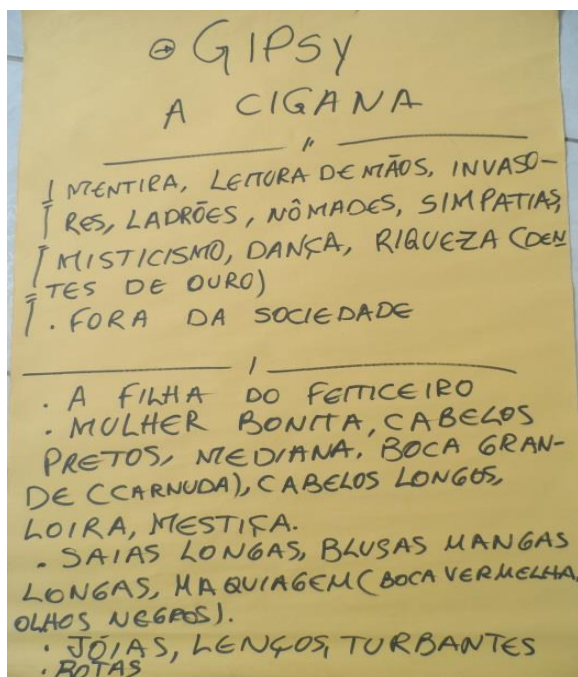 → GIPSY
A CIGANA
"
MENTIRA, LEITURA DE MÃOS, INVASO-
RES, LADRÕES, NÔMADES, SIMPATIAS,
MISTICISMO, DANÇA, RIQUEZA (DEN
TES DE OURO)
. FORA DA SOCIEDADE
. A FILHA DO FEITICEIRO
. MULHER BONITA, CABELOS
PRETOS, MEDIANA. BOCA GRAN-
DE (CARNUDA), CABELOS LONGOS,
LOIRA, MESTIÇA.
. SAIAS LONGAS, BLUSAS MANGAS
LONGAS, MAQUIAGEM (BOCA VERMELHA,
OLHOS NEGROS).
. JÓIAS, LENÇOS, TURBANTES
. BOTAS